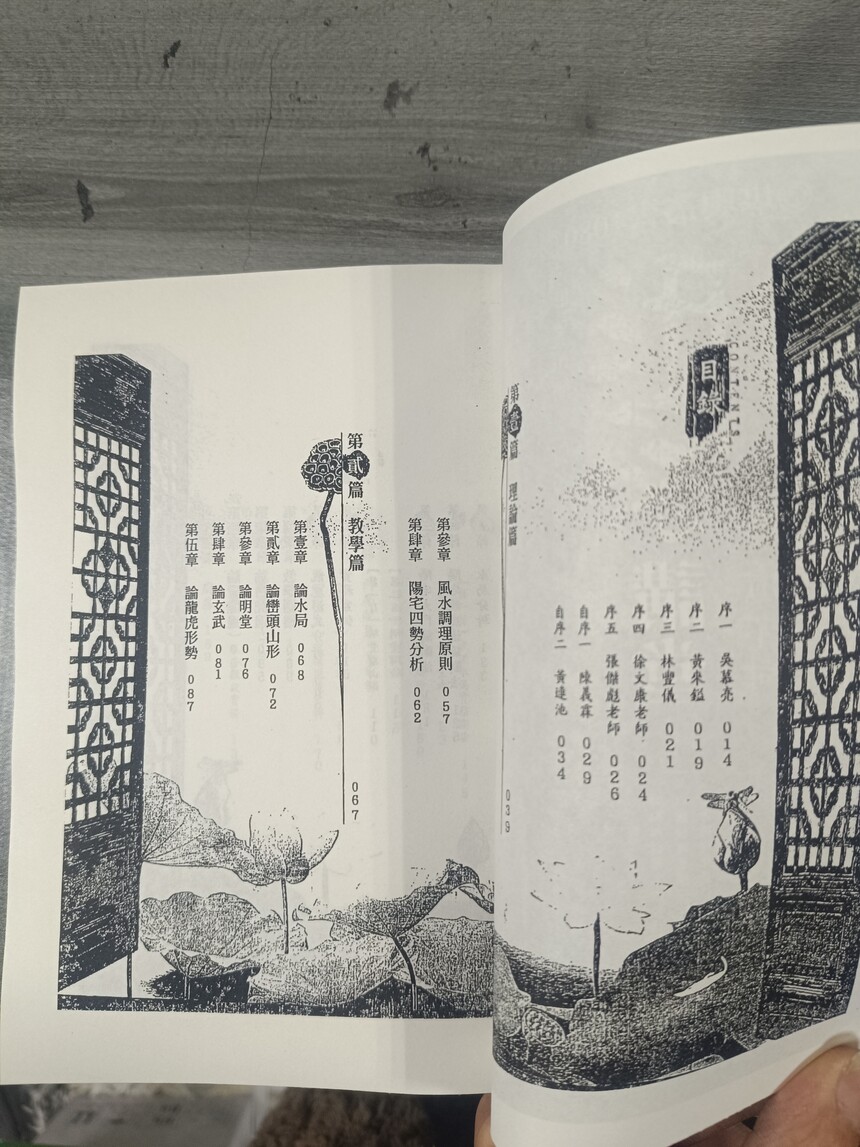 目錄
CONTENTS
序一 吳慕亮 014
序二 黃來鎰 019
序三 林豐儀 021
序四 徐文康老師 024
序五 張傑彪老師 026
自序一 陳義霖 029
自序二 黃連池 034
第壹篇 理論篇 039
第參章 風水調理原則 057
第肆章 陽宅四勢分析 062
第貳篇 教學篇 067
第壹章 論水局 068
第貳章 論巒頭山形 072
第參章 論明堂 076
第肆章 論玄武 081
第伍章 論龍虎形勢 087